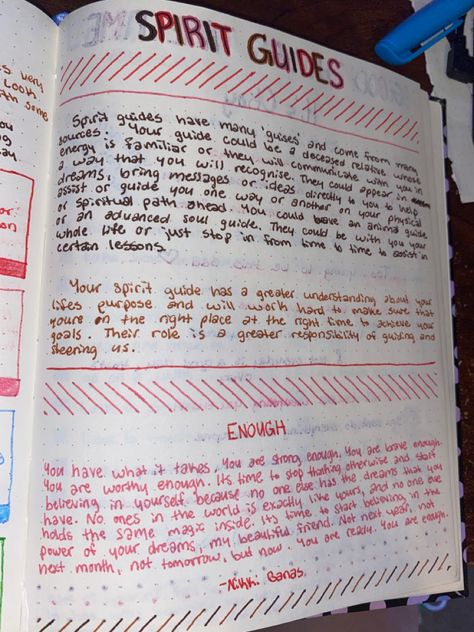 SPIRIT GUIDES
Spirit guides have many 'guises' and come from many
sources. Your guide could be a deceased relative whose
energy is familiar or they will communicate with you in
a way that you will recognise. They could appear in
dreams, bring messages or ideas directly to you to help
assist or guide you one way or another on your physical
or spiritual path ahead. You could have an animal guide
or an advanced soul guide. They could be with you your
whole life or just stop in from time to time to assist in
certain lessons.
Your spirit guide has a greater understanding about your
lifes purpose and will work hard to make sure that
youre on the right place at the right time to achieve your
goals. Their role is a greater responsibility of guiding and
steering us.
ENOUGH
You have what it takes. You are strong enough, You are brave enough.
You are worthy enough. Its time to stop thinking otherwise and start
believing in yourself because no one else has the dreams that you
have. No ones in the world is exactly like yours, and no one else
holds the same magic inside. Its time to start believing in the
power of your dreams, my beautiful friend. Not next year, not
next month, not tomorrow, but now. You are ready. You are enough.
-Nikki Banas.